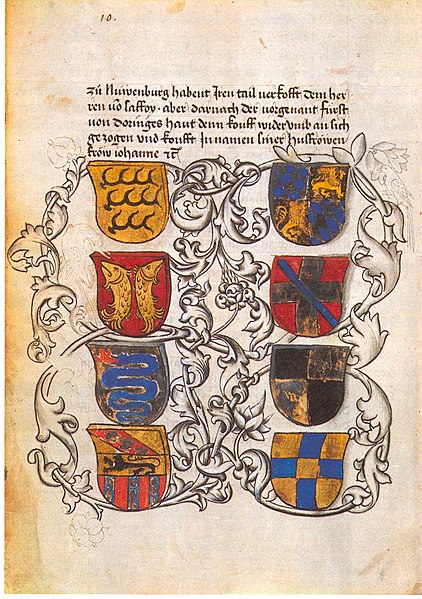 10.
zů Nüwenburg habent Iren tail verkofft dem her
ren võ saffoy · aber darnach der vorgenant fürst
von doringes haut denn kouff widerumb an sich
gezogen vnd koufft In namen siner Husfröwen
fröw iohanne